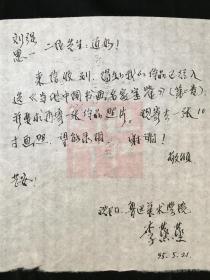 刘强
思一 二位先生：近好！
来信收到，得知我的作品已经入
选《当代中国书画名家宝鉴》（第一卷），
并要求再寄一张作品照片，现寄去一张10
寸画照，望能采用，谢谢！
敬颂
艺安！
沈阳、鲁迅美术学院
李燕燕
95.5.21.